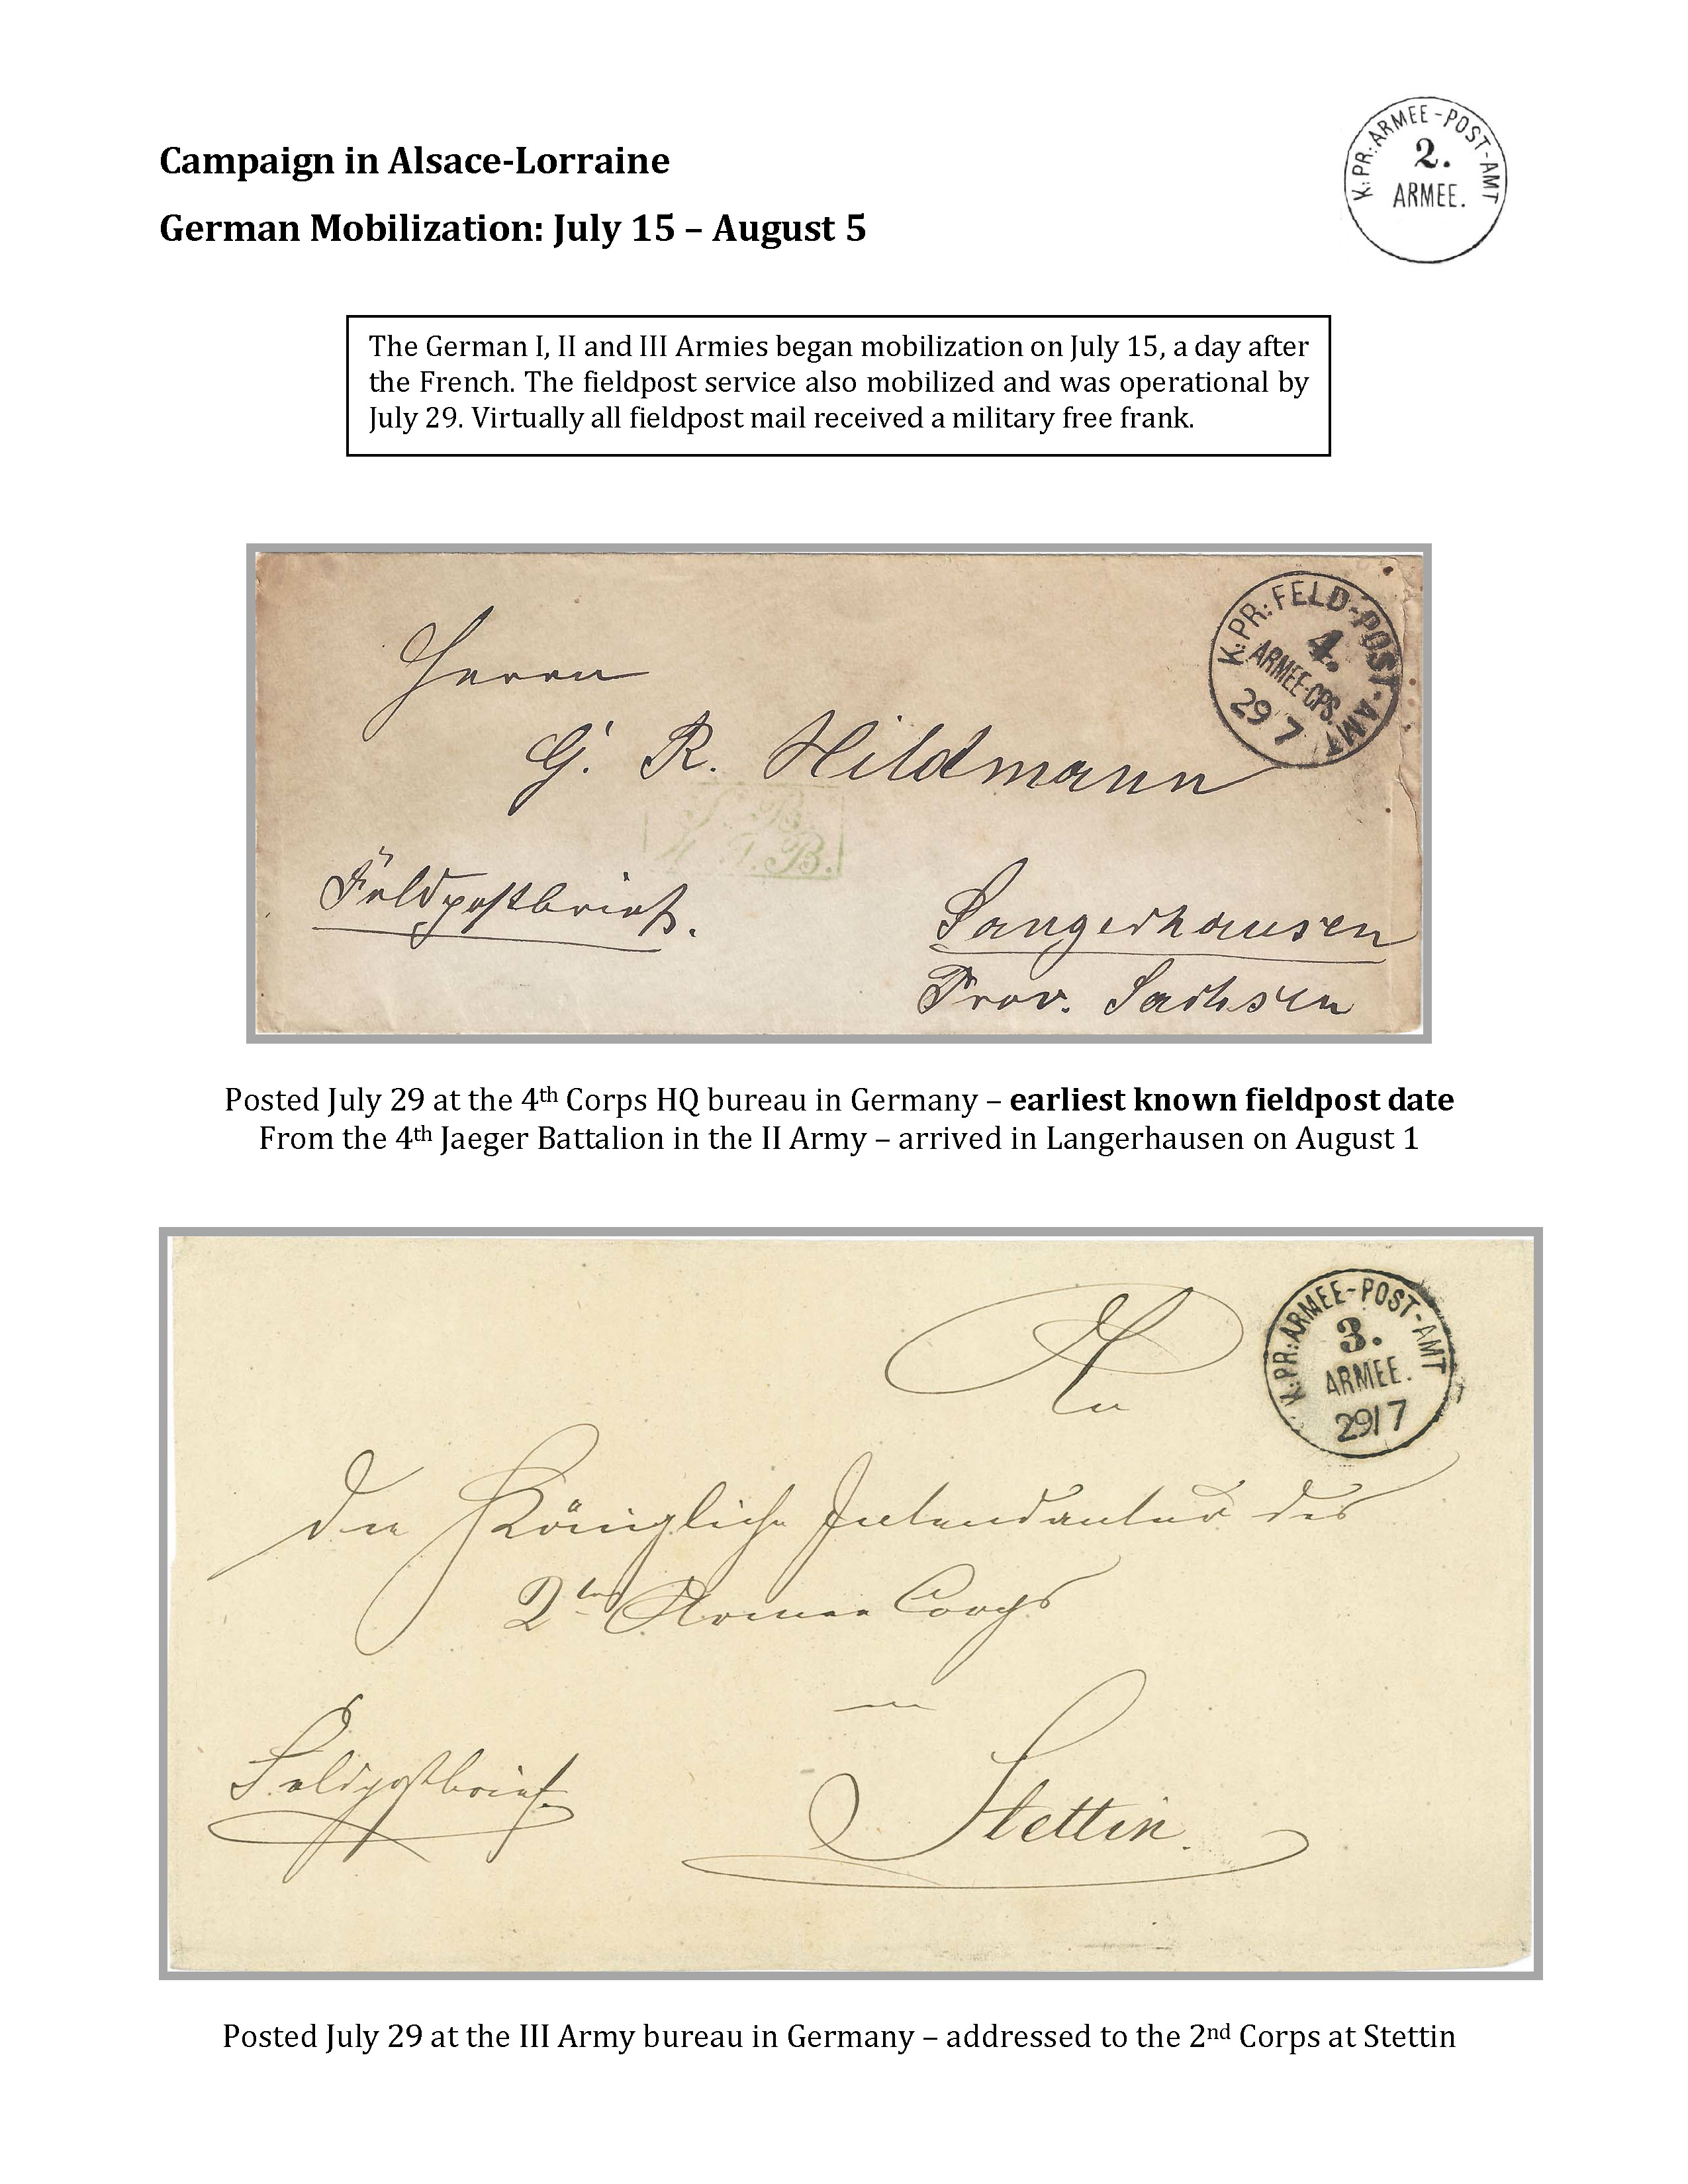 Campaign in Alsace-Lorraine
German Mobilization: July 15 – August 5
K:PR:ARMEE-POST-AMT
2.
ARMEE.
The German I, II and III Armies began mobilization on July 15, a day after
the French. The fieldpost service also mobilized and was operational by
July 29. Virtually all fieldpost mail received a military free frank.
K:PR:FELD-POST-AMT
4.
ARMEE-CPS.
29 7
Herrn
G. R. Hildmann
S. B.
4 J. B.
Feldpostbrief.
Sangerhausen
Prov. Sachsen
Posted July 29 at the 4th Corps HQ bureau in Germany – earliest known fieldpost date
From the 4th Jaeger Battalion in the II Army – arrived in Langerhausen on August 1
K:PR:ARMEE-POST-AMT
3.
ARMEE.
29/7
An
die Königliche Intendantur des
2ten Armee Corps
in
Feldpostbrief.
Stettin.
Posted July 29 at the III Army bureau in Germany – addressed to the 2nd Corps at Stettin